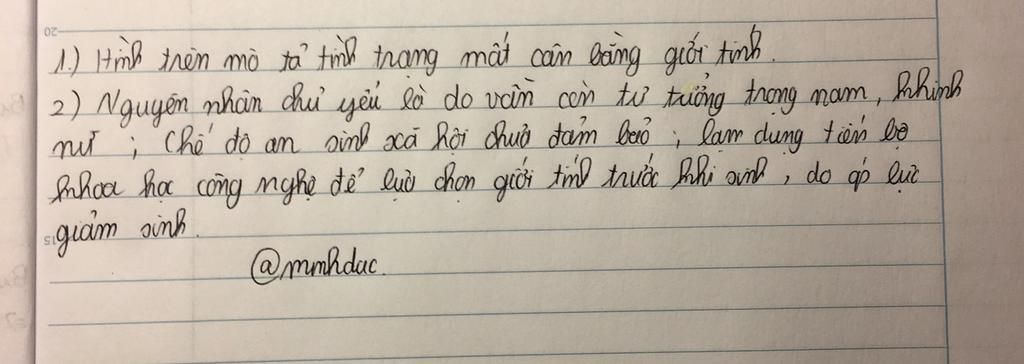 1.) Hình trên mô tả tình trạng mất cân bằng giới tính.
2) Nguyên nhân chủ yếu là do vẫn còn tư tưởng trọng nam, khinh
nữ ; Chế độ an sinh xã hội chưa đảm bảo ; lạm dụng tiến bộ
khoa học công nghệ để lựa chọn giới tính trước khi sinh, do áp lực
giảm sinh.
@mmhduc.